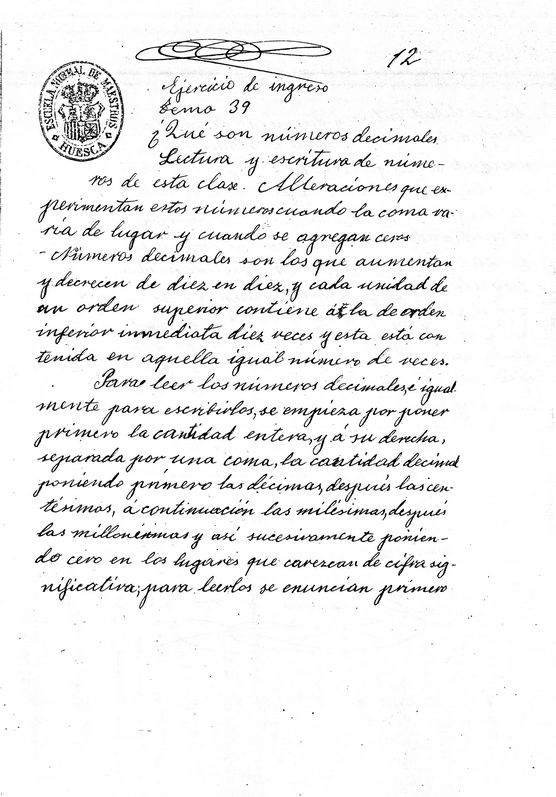 12
ESCUELA NORMAL DE MAESTROS
HUESCA
Ejercicio de ingreso
Tema 39
¿Qué son números decimales
Lectura y escritura de núme-
ros de esta clase. Alteraciones que ex-
perimentan estos números cuando la coma va-
ría de lugar y cuando se agregan ceros
- Números decimales son los que aumentan
y decrecen de diez en diez, y cada unidad de
un orden superior contiene á la de orden
inferior inmediata diez veces y esta está con
tenida en aquella igual número de veces.
Para leer los números decimales, é igual
mente para escribirlos, se empieza por poner
primero la cantidad entera, y á su derecha,
separada por una coma, la cantidad decimal
poniendo primero las décimas, después las cen-
tésimas, a continuación las milésimas, después
las millonésimas y así sucesivamente ponien-
do cero en los lugares que carezcan de cifra sig-
nificativa; para leerlos se enuncian primero